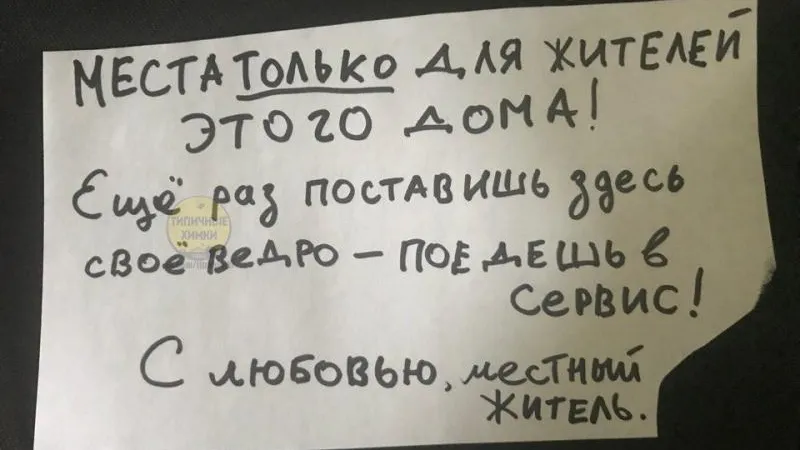 МЕСТА ТОЛЬКО ДЛЯ ЖИТЕЛЕЙ
ЭТОГО ДОМА!
Ещё раз поставишь здесь
своё ведро — поедешь в
сервис!
С любовью, местный
житель.
ТИПИЧНЫЕ
ХИМКИ